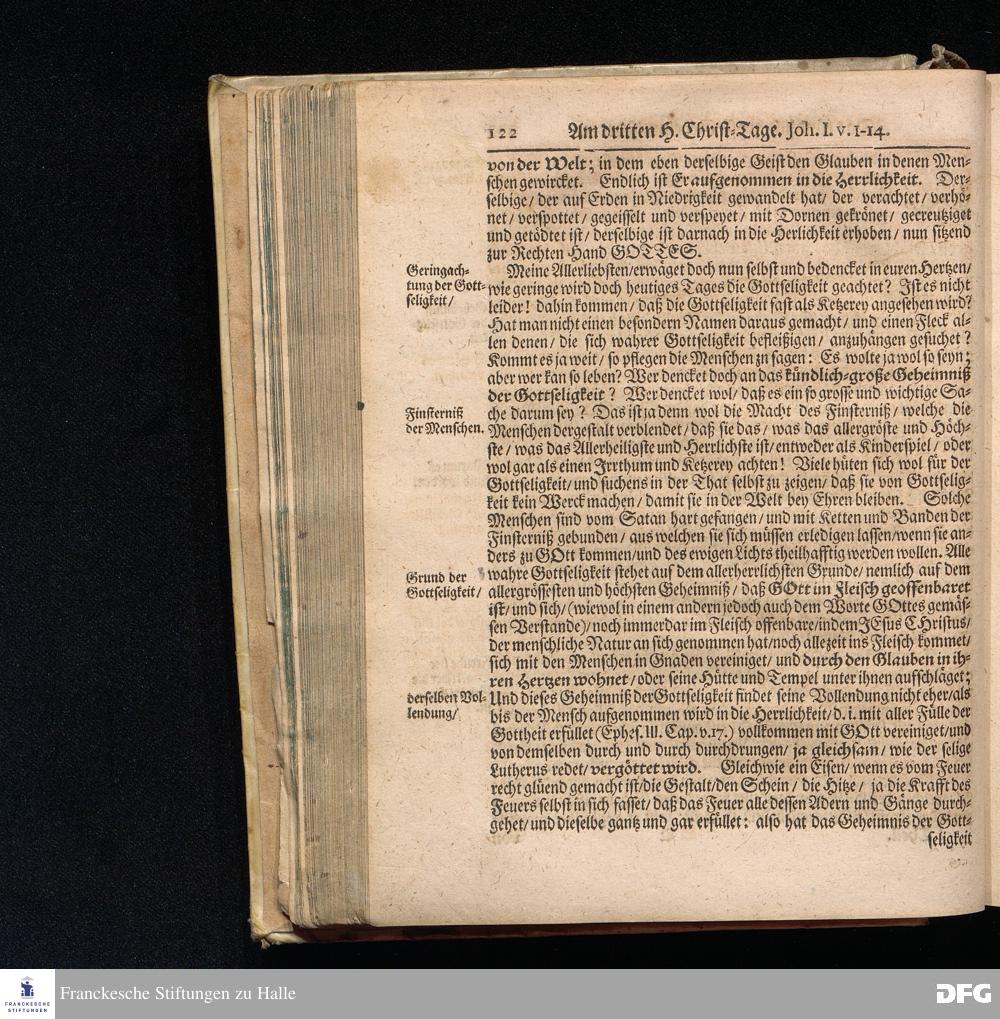 122 Am dritten H. Christ-Tage. Joh. I. v. 1-14.
von der Welt; in dem eben derselbige Geist den Glauben in denen Men-
schen gewircket. Endlich ist Er aufgenommen in die Herrlichkeit. Der-
selbige/ der auf Erden in Niedrigkeit gewandelt hat/ der verachtet/ verhö-
net/ verspottet/ gegeisselt und verspeyet/ mit Dornen gekrönet/ gecreutziget
und getödtet ist/ derselbige ist darnach in die Herlichkeit erhoben/ nun sitzend
zur Rechten Hand GOTTES.
Geringach-
tung der Gott-
seligkeit/
Meine Allerliebsten/ erwäget doch nun selbst und bedencket in euren Hertzen/
wie geringe wird doch heutiges Tages die Gottseligkeit geachtet? Ist es nicht
leider! dahin kommen/ daß die Gottseligkeit fast als Ketzerey angesehen wird?
Hat man nicht einen besondern Namen daraus gemacht/ und einen Fleck al-
len denen/ die sich wahrer Gottseligkeit befleißigen/ anzuhängen gesuchet?
Kommt es ja weit/ so pflegen die Menschen zu sagen: Es wolte ja wol so seyn;
aber wer kan so leben? Wer dencket doch an das kündlich-große Geheimniß
der Gottseligkeit? Wer dencket wol/ daß es ein so grosse und wichtige Sa-
Finsterniß
der Menschen.
che darum sey? Das ist ja denn wol die Macht des Finsterniß/ welche die
Menschen dergestalt verblendet/ daß sie das/ was das allergröste und Höch-
ste/ was das Allerheiligste und Herrlichste ist/ entweder als Kinderspiel/ oder
wol gar als einen Irrthum und Ketzerey achten! Viele hüten sich wol für der
Gottseligkeit/ und suchens in der That selbst zu zeigen/ daß sie von Gottselig-
keit kein Werck machen/ damit sie in der Welt bey Ehren bleiben. Solche
Menschen sind vom Satan hart gefangen/ und mit Ketten und Banden der
Finsterniß gebunden/ aus welchen sie sich müssen erledigen lassen/ wenn sie an-
ders zu GOtt kommen/ und des ewigen Lichts theilhafftig werden wollen. Alle
Grund der
Gottseligkeit/
wahre Gottseligkeit stehet auf dem allerherrlichsten Grunde/ nemlich auf dem
allergrössesten und höchsten Geheimniß/ daß GOtt im Fleisch geoffenbaret
ist/ und sich/ (wiewol in einem andern jedoch auch dem Worte GOttes gemäs-
sen Verstande)/ noch immerdar im Fleisch offenbare/ indem JEsus CHristus/
der menschliche Natur an sich genommen hat/ noch allezeit ins Fleisch kommet/
sich mit den Menschen in Gnaden vereiniget/ und durch den Glauben in ih-
ren Hertzen wohnet/ oder seine Hütte und Tempel unter ihnen aufschläget;
derselben Vol-
lendung/
Und dieses Geheimniß der Gottseligkeit findet seine Vollendung nicht eher/ als
bis der Mensch aufgenommen wird in die Herrlichkeit/ d. i. mit aller Fülle der
Gottheit erfüllet (Ephes. III. Cap. v. 17.) vollkommen mit GOtt vereiniget/ und
von demselben durch und durch durchdrungen/ ja gleichsam/ wie der selige
Lutherus redet/ vergöttet wird. Gleichwie ein Eisen/ wenn es vom Feuer
recht glüend gemacht ist/ die Gestalt/ den Schein/ die Hitze/ ja die Krafft des
Feuers selbst in sich fasset/ daß das Feuer alle dessen Adern und Gänge durch-
gehet/ und dieselbe gantz und gar erfüllet: also hat das Geheimnis der Gott-
seligkeit
FRANCKESCHE
STIFTUNGEN
Franckesche Stiftungen zu Halle
DFG